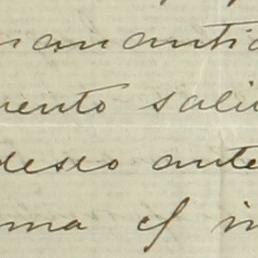 manantia
mento sali
deseo ante
ma el in